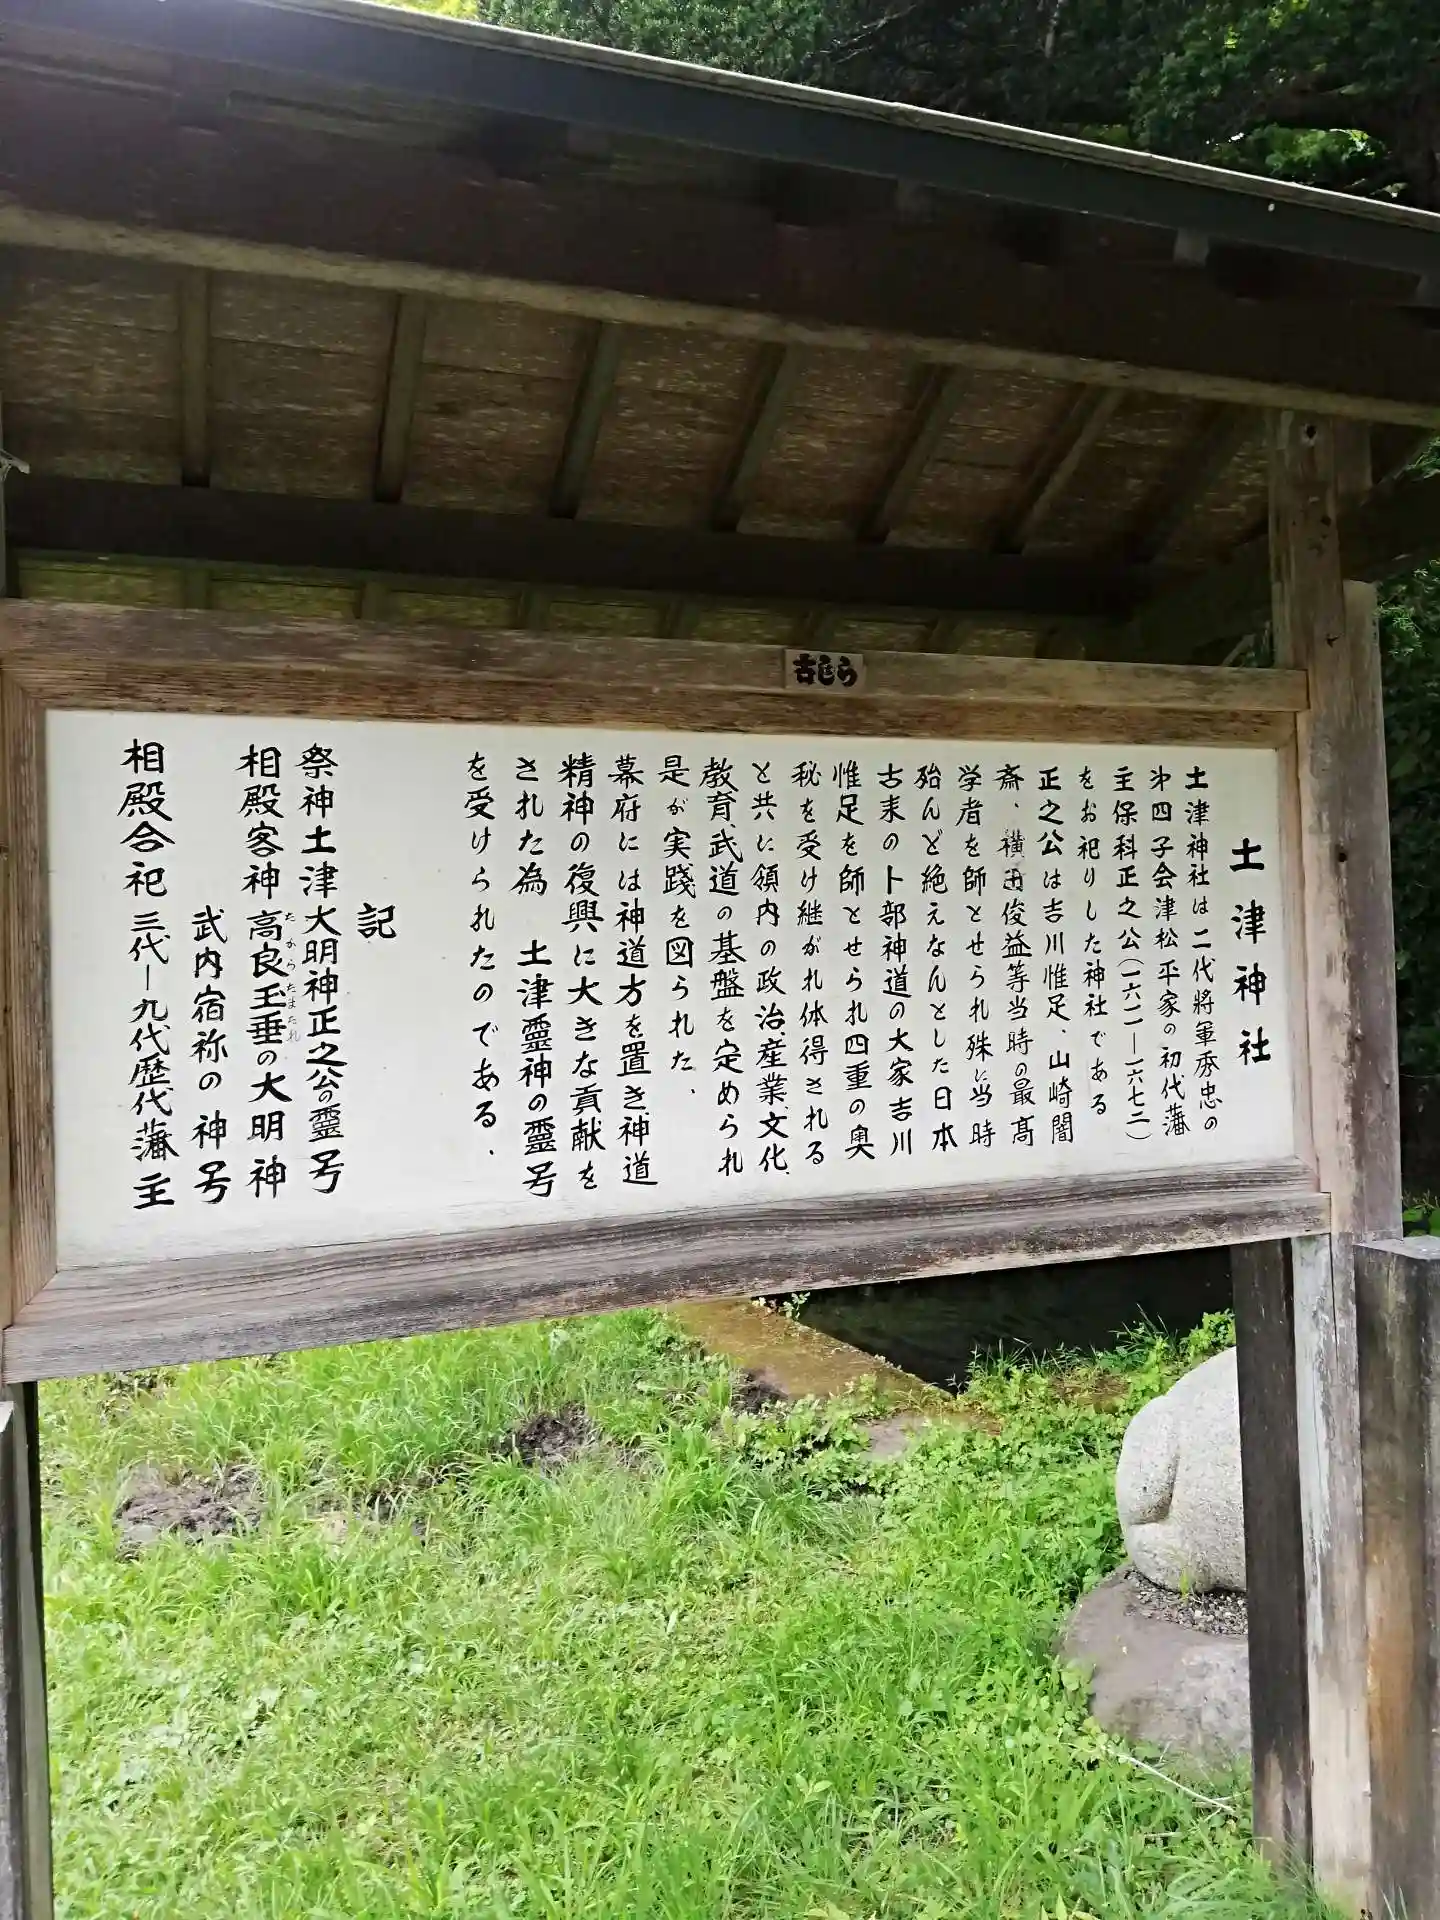 古しら
土津神社
土津神社は二代将軍秀忠の
第四子会津松平家の初代藩
主保科正之公(一六一一―一六七二)
をお祀りした神社である
正之公は吉川惟足、山崎闇
斎、横田俊益等当時の最高
学者を師とせられ殊に当時
殆んど絶えなんとした日本
古来の卜部神道の大家吉川
惟足を師とせられ四重の奥
秘を受け継がれ体得される
と共に領内の政治、産業、文化、
教育、武道の基盤を定められ
是が実践を図られた、
幕府には神道方を置き、神道
精神の復興に大きな貢献を
された為 土津霊神の霊号
を受けられたのである、
記
祭神土津大明神正之公の霊号
相殿客神高良玉垂の大明神
たからたまたれ
武内宿祢の神号
相殿合祀三代―九代歴代藩主